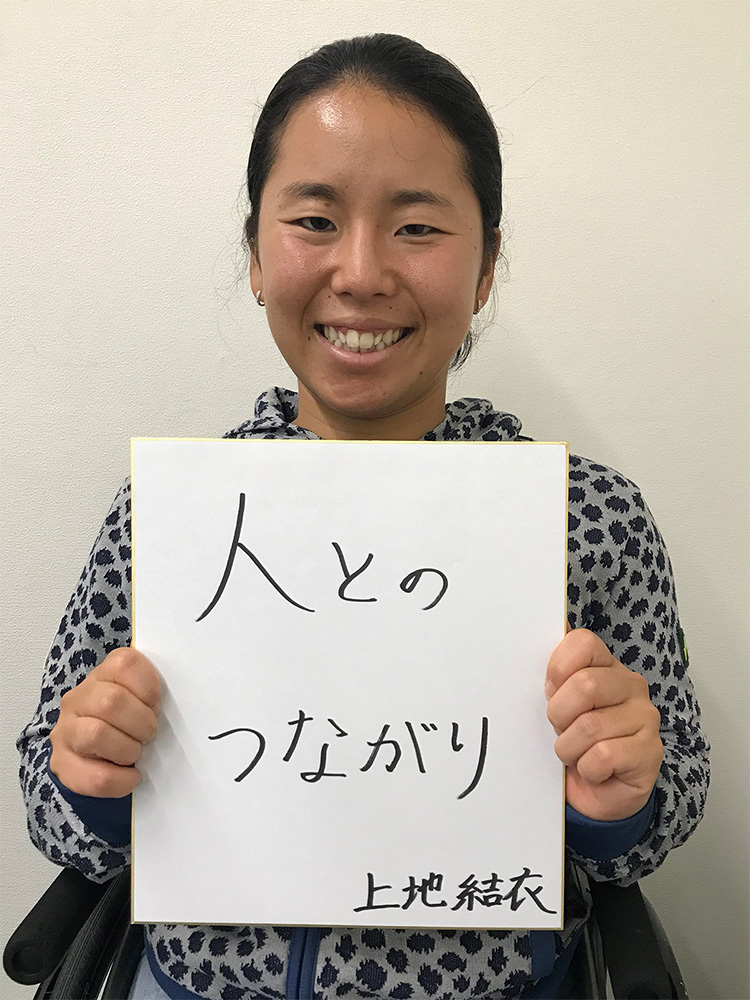 人との
つながり
上地結衣